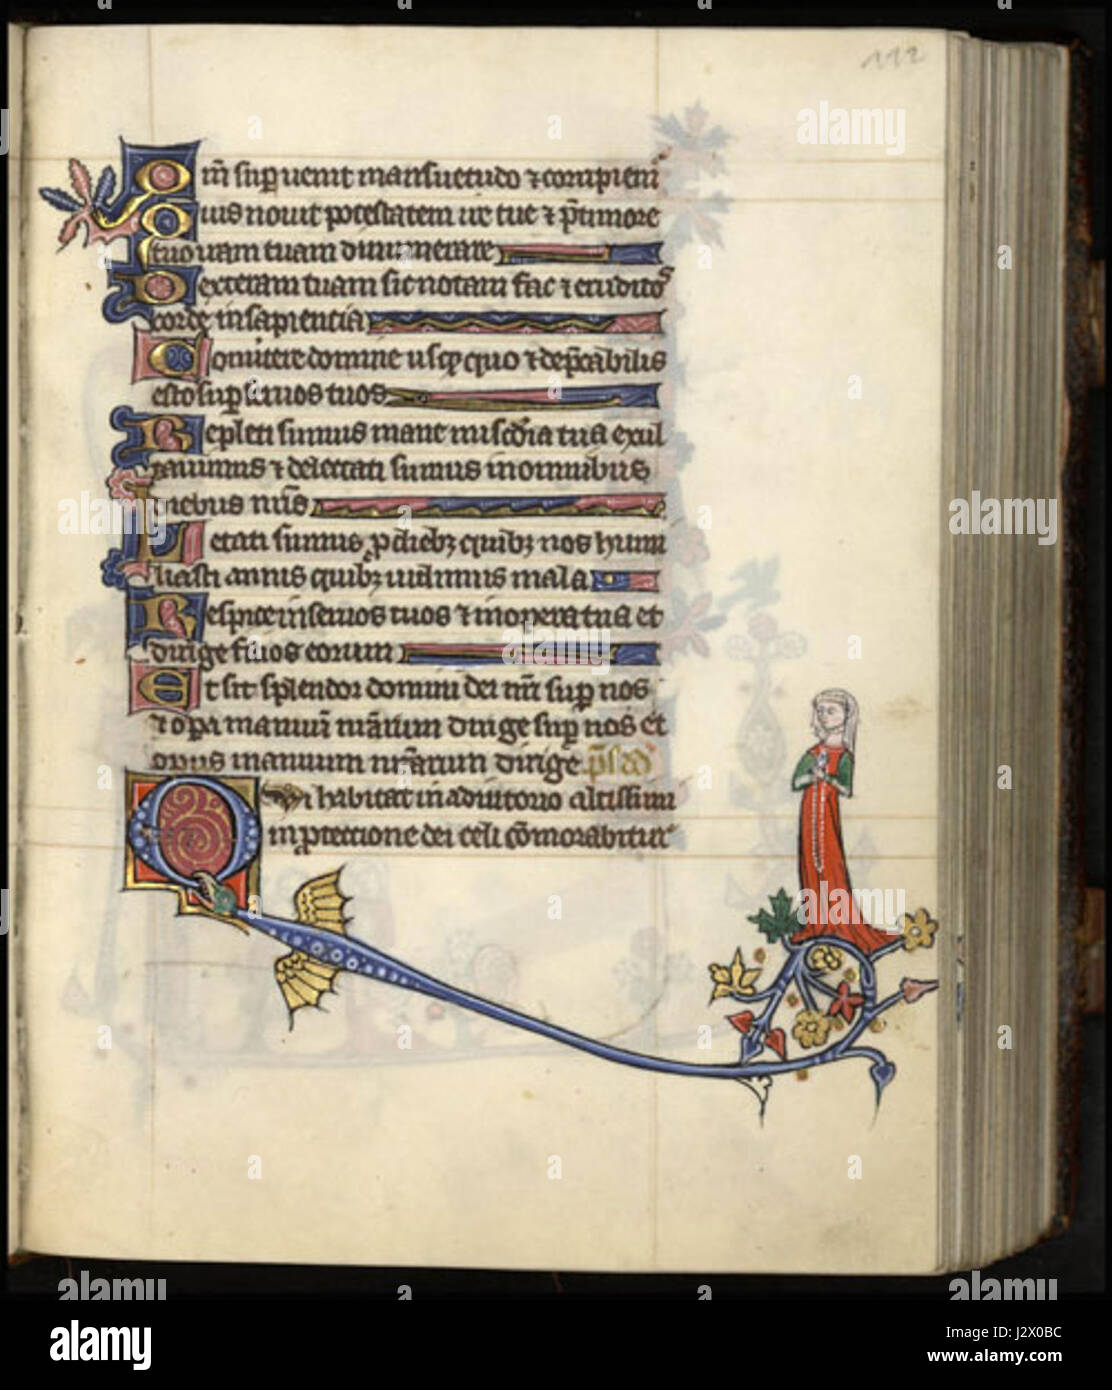 112
Qm̄ sup̄uenit mansuetudo ⁊ corripiem̄
Quis nouit potestatem ire tue ⁊ p̄ timore
tuo iram tuam dinumerare
Dexteram tuam sic notam fac ⁊ eruditos
corde in sapientia
Conuertere domine usq̨ quo ⁊ dep̄cabilis
esto sup̄ seruos tuos
Repleti sumus mane mis̄c̄dia tua exul
tauimus ⁊ delectati sumus in omnibus
diebus nr̄is
Letati sumus p̱ dieb; quib; nos humi
liasti annis quib; uidimus mala
Respice in seruos tuos ⁊ in opera tua et
dirige filios eorum
Et sit splendor domini dei nr̄i sup̄ nos
⁊ opa manuū nr̄arum dirige sup̄ nos et
opus manuum nr̄arum dirige. p̄s dd̄
Qui habitat in adiutorio altissimi
in p̱tectione dei celi cōmorabitur
alamy
Image ID: J2X0BC
www.alamy.com